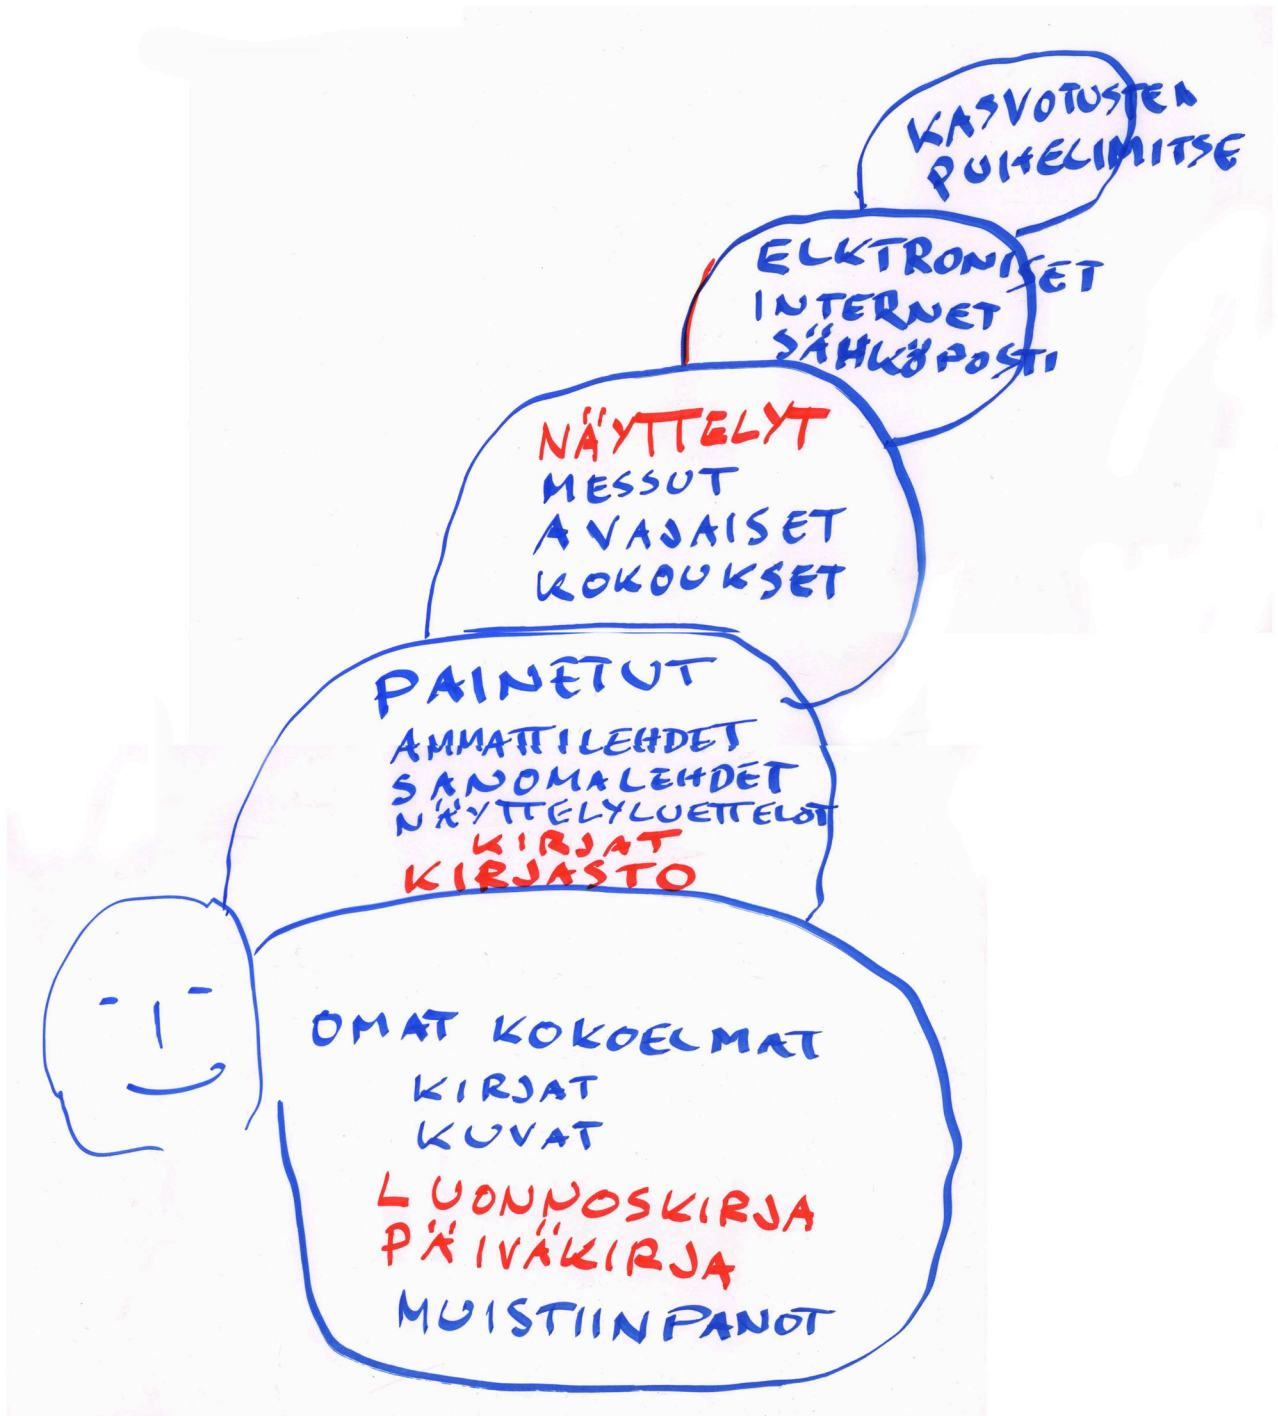 KASVOTUSTEN
PUHELIMITSE
ELKTRONISET
INTERNET
SÄHKÖPOSTI
NÄYTTELYT
MESSUT
AVAJAISET
KOKOUKSET
PAINETUT
AMMATTILEHDET
SANOMALEHDET
NÄYTTELYLUETTELOT
KIRJAT
KIRJASTO
OMAT KOKOELMAT
KIRJAT
KUVAT
LUONNOSKIRJA
PÄIVÄKIRJA
MUISTIINPANOT